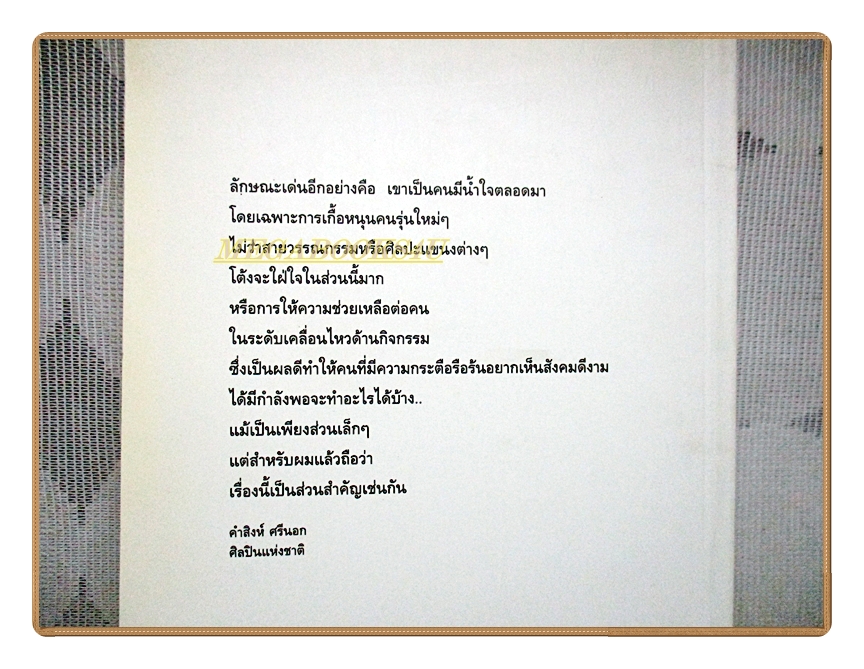 ลักษณะเด่นอีกอย่างคือ เขาเป็นคนมีน้ำใจตลอดมา
โดยเฉพาะการเกื้อหนุนคนรุ่นใหม่ๆ
ไม่ว่าสายวรรณกรรมหรือศิลปะแขนงต่างๆ
โต้งจะใฝ่ใจในส่วนนี้มาก
หรือการให้ความช่วยเหลือต่อคน
ในระดับเคลื่อนไหวด้านกิจกรรม
ซึ่งเป็นผลดีทำให้คนที่มีความกระตือรือร้นอยากเห็นสังคมดีงาม
ได้มีกำลังพอจะทำอะไรได้บ้าง..
แม้เป็นเพียงส่วนเล็กๆ
แต่สำหรับผมแล้วถือว่า
เรื่องนี้เป็นส่วนสำคัญเช่นกัน
คำสิงห์ ศรีนอก
ศิลปินแห่งชาติ